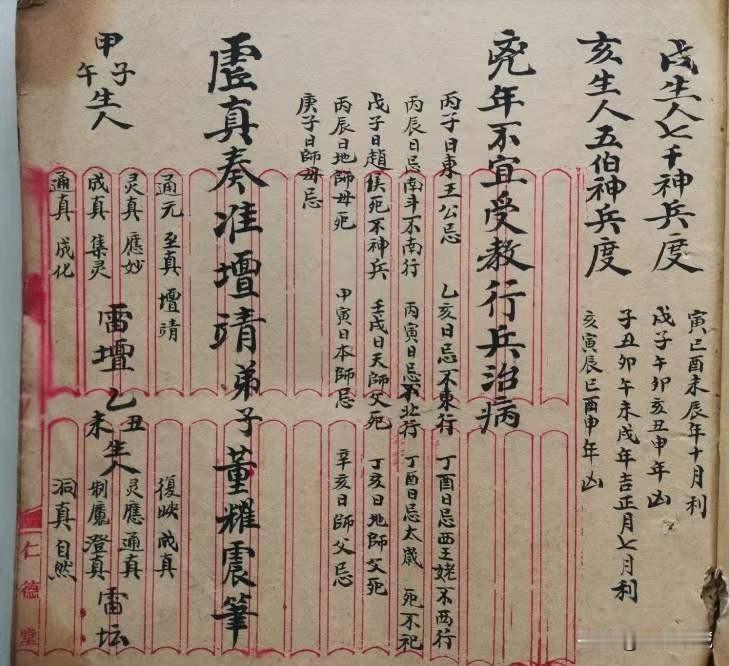 戌生人七千神兵度
寅已酉未辰年十月利
戊子午卯亥丑申年凶
亥生人五伯神兵度
子丑卯午未戌年吉正月七月利
亥寅辰已酉申年凶
兇年不宜受教行兵治病
丙子日東王公忌 乙亥日忌不東行 丁酉日忌西王姥不西行
丙辰日忌南斗不南行 丙寅日忌不北行 丁酉日忌太歲 死不祀
戊子日趙侯死不神兵 壬戌日天師父死 丁亥日地師父死
丙辰日地師母死 甲寅日本師忌 辛亥日師父忌
庚子日師母忌
虛真奏准壇靖弟子董耀震筆
甲子午生人
通元 至真 壇靖
灵真 應妙
成真 集灵
通真 成化
雷壇
乙丑未生人
復映 成真
灵應 通真
制魔 澄真
洞真 自然
雷坛
仁德堂